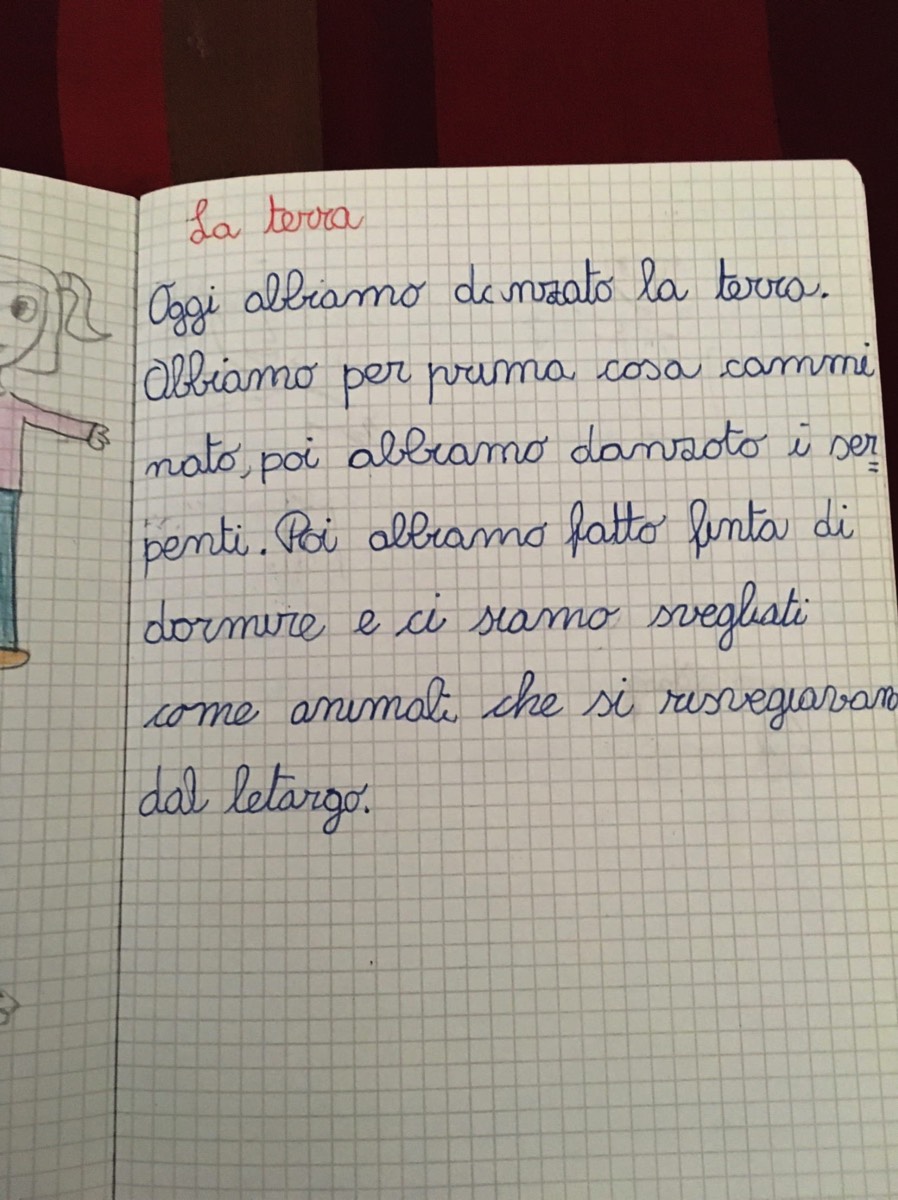 La terra
Oggi abbiamo danzato la terra.
Abbiamo per prima cosa cammi
nato, poi abbiamo danzato i ser=
penti. Poi abbiamo fatto finta di
dormire e ci siamo svegliati
come animali che si risvegiavano
dal letargo.